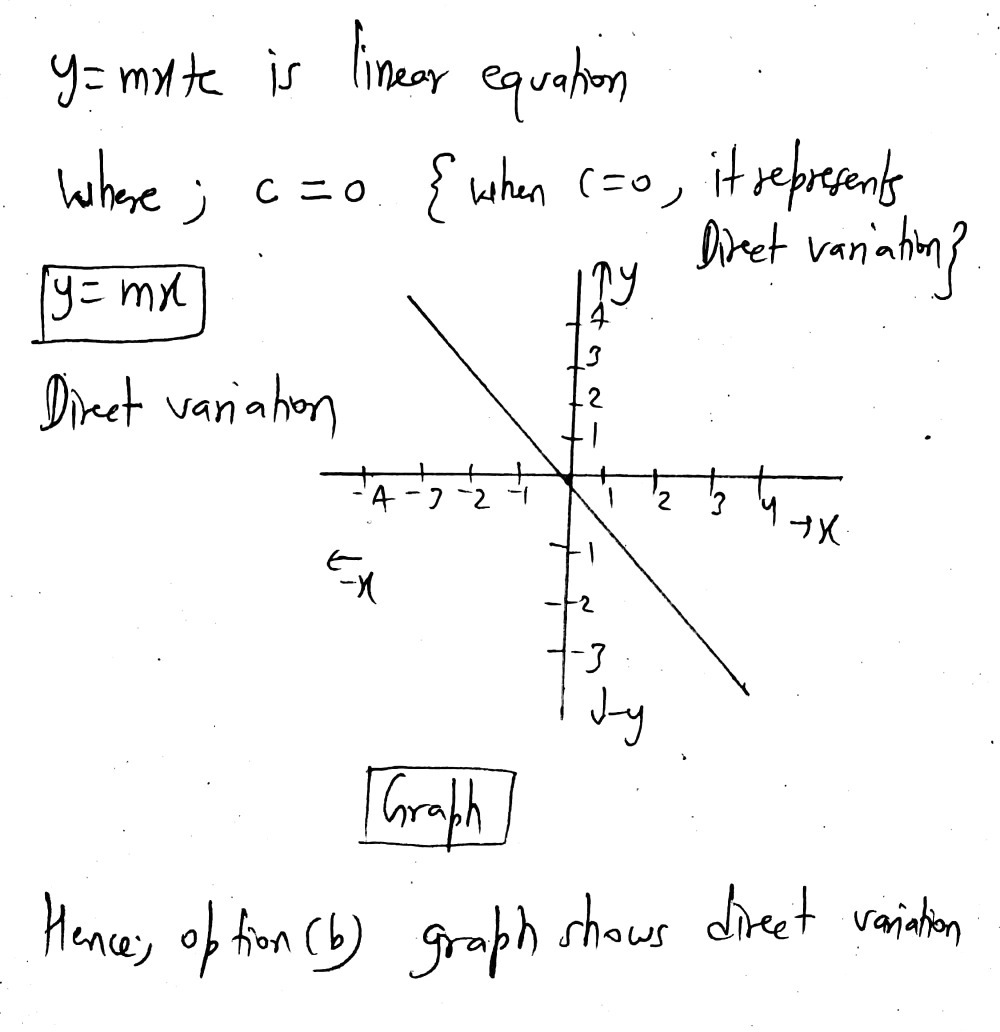 y = mx+c is linear equation
where ; c = 0 { when c=0, it represents
Direct variation}
y = mx
Direct variation
↑y
4
3
2
1
-4 -3 -2 -1 1 2 3 4 →x
←-x
-1
-2
-3
↓-y
Graph
Hence; option (b) graph shows direct variation